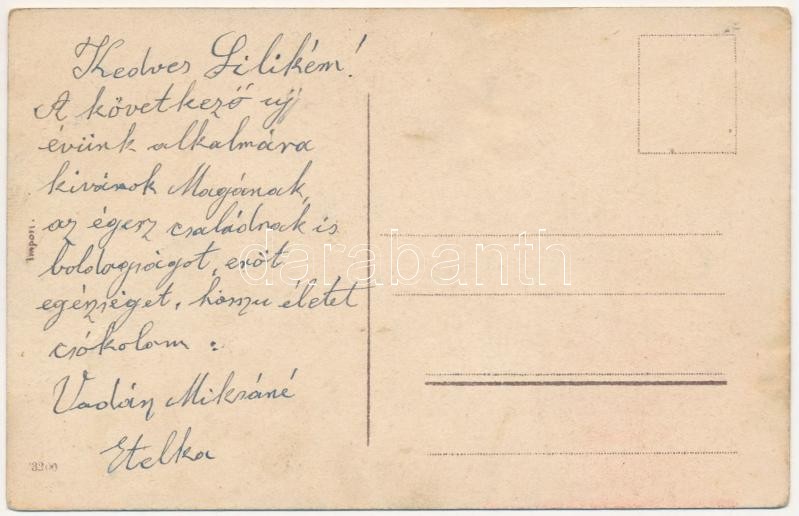 Kedves Lilikém!
A következő uj
évünk alkalmára
kivánok Magának,
az égesz családnak is
boldogságot, erőt
egészséget, hosszu életet
csókolom :
Vadász Miksáné
Etelka
Import.
3200
darabanth